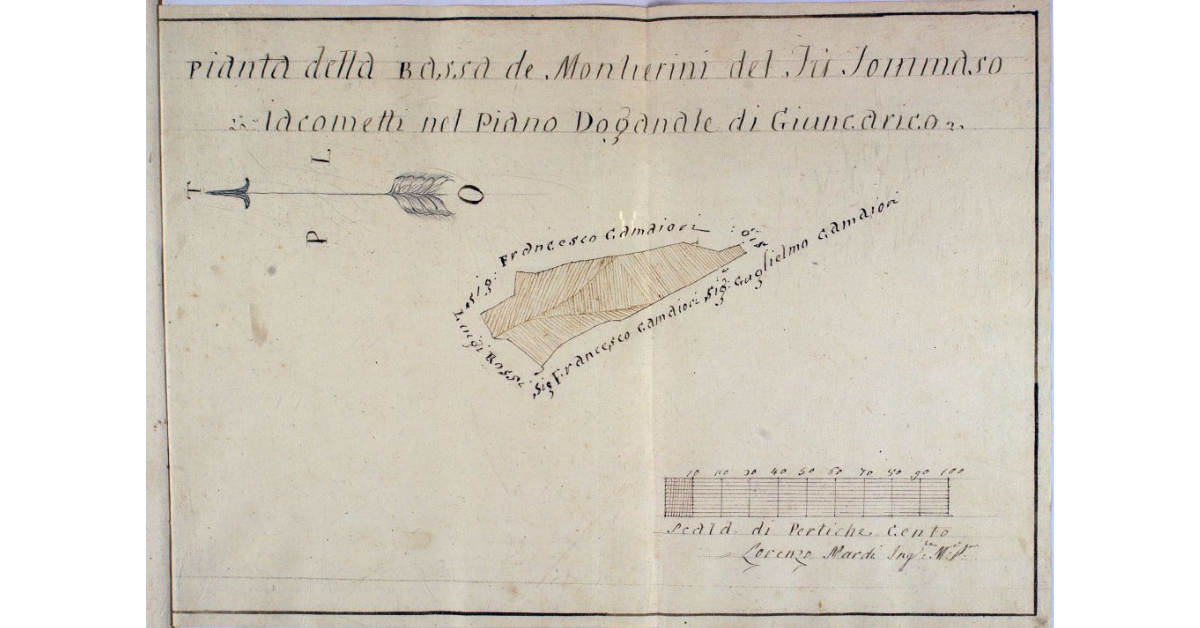 Pianta della Bassa de Montierini del Fù Tommaso
Iacometti nel Piano Doganale di Giuncarico
L
T
O
P
Sig: Francesco Gamaiori
Luigi Rossi
Sig Francesco Gamaiori
Sig: Guglielmo Gamaiori
10 20 30 40 50 60 70 80 90 100
Scala di Pertiche Cento
Lorenzo Mardi Ing: